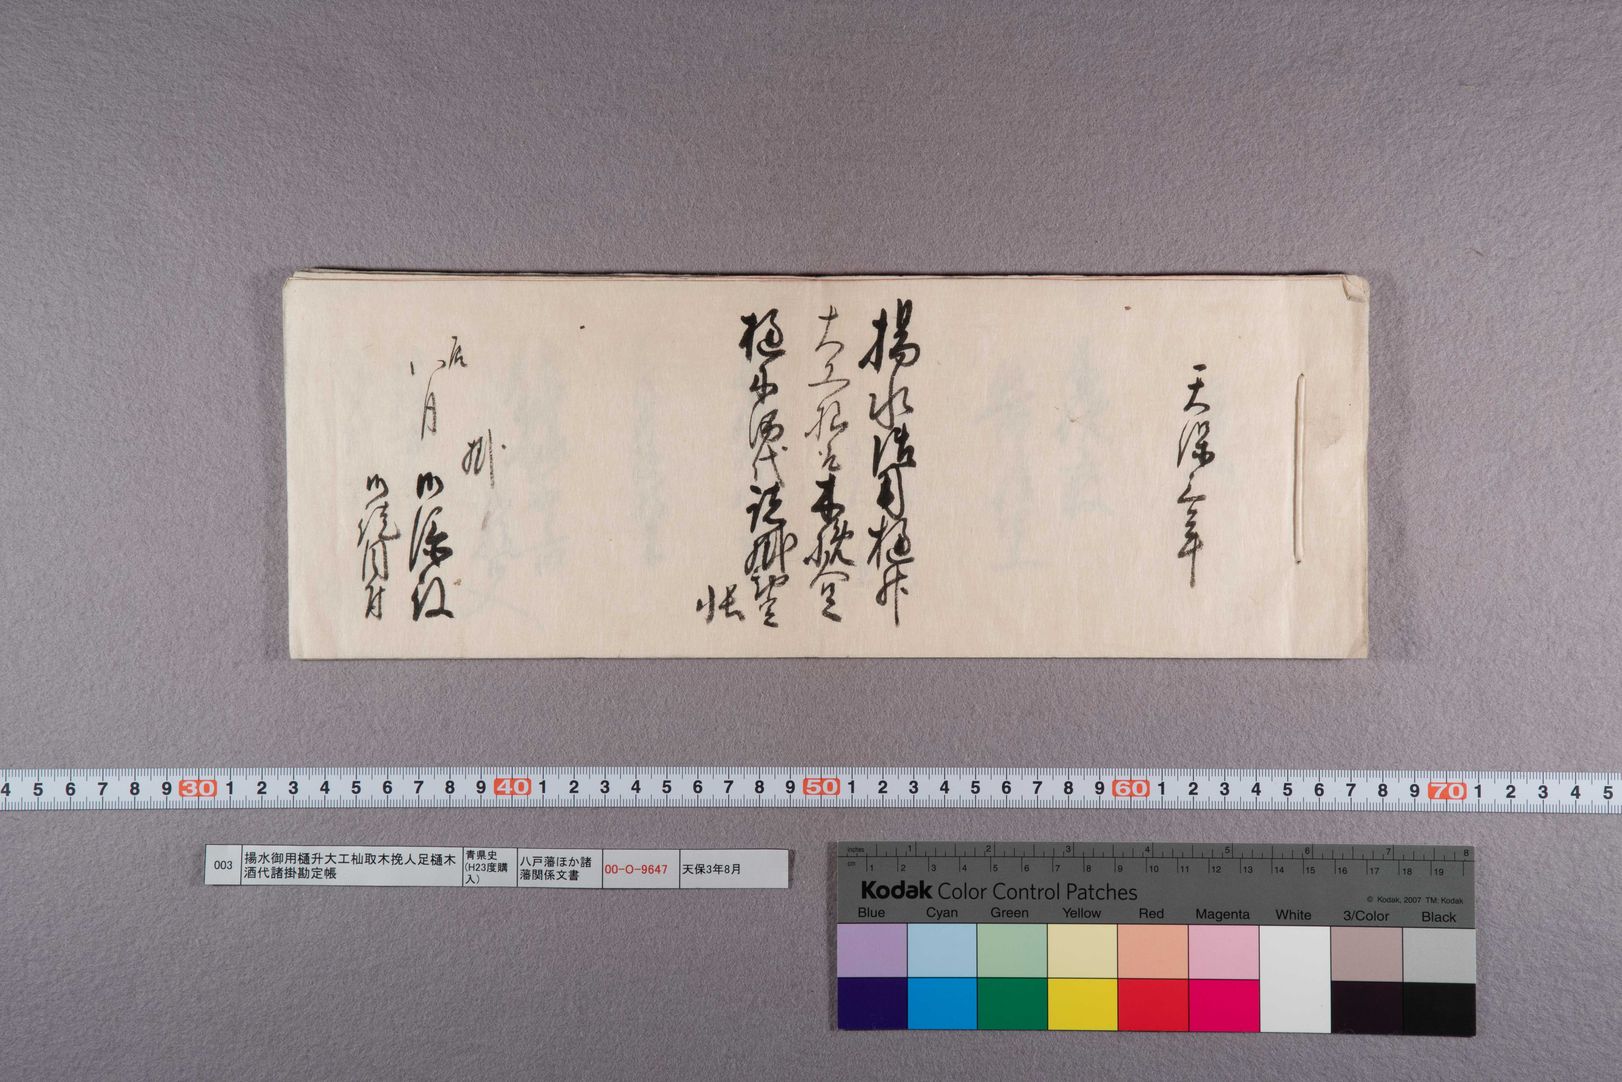 天保三年
揚水御用樋升
大工杣取木挽人足
樋木酒代諸掛勘定
帳
辰
八月
掛
003
揚水御用樋升大工杣取木挽人足樋木
酒代諸掛勘定帳
青県史
(H23度購
入)
八戸藩ほか諸
藩関係文書
00-O-9647
天保3年8月
4 5 6 7 8 9 30 1 2 3 4 5 6 7 8 9 40 1 2 3 4 5 6 7 8 9 50 1 2 3 4 5 6 7 8 9 60 1 2 3 4 5 6 7 8 9 70 1 2 3 4 5
inches 1 2 3 4 5 6 7 8
cm 1 2 3 4 5 6 7 8 9 10 11 12 13 14 15 16 17 18 19
Kodak Color Control Patches
© Kodak, 2007 TM: Kodak
Blue Cyan Green Yellow Red Magenta White 3/Color Black